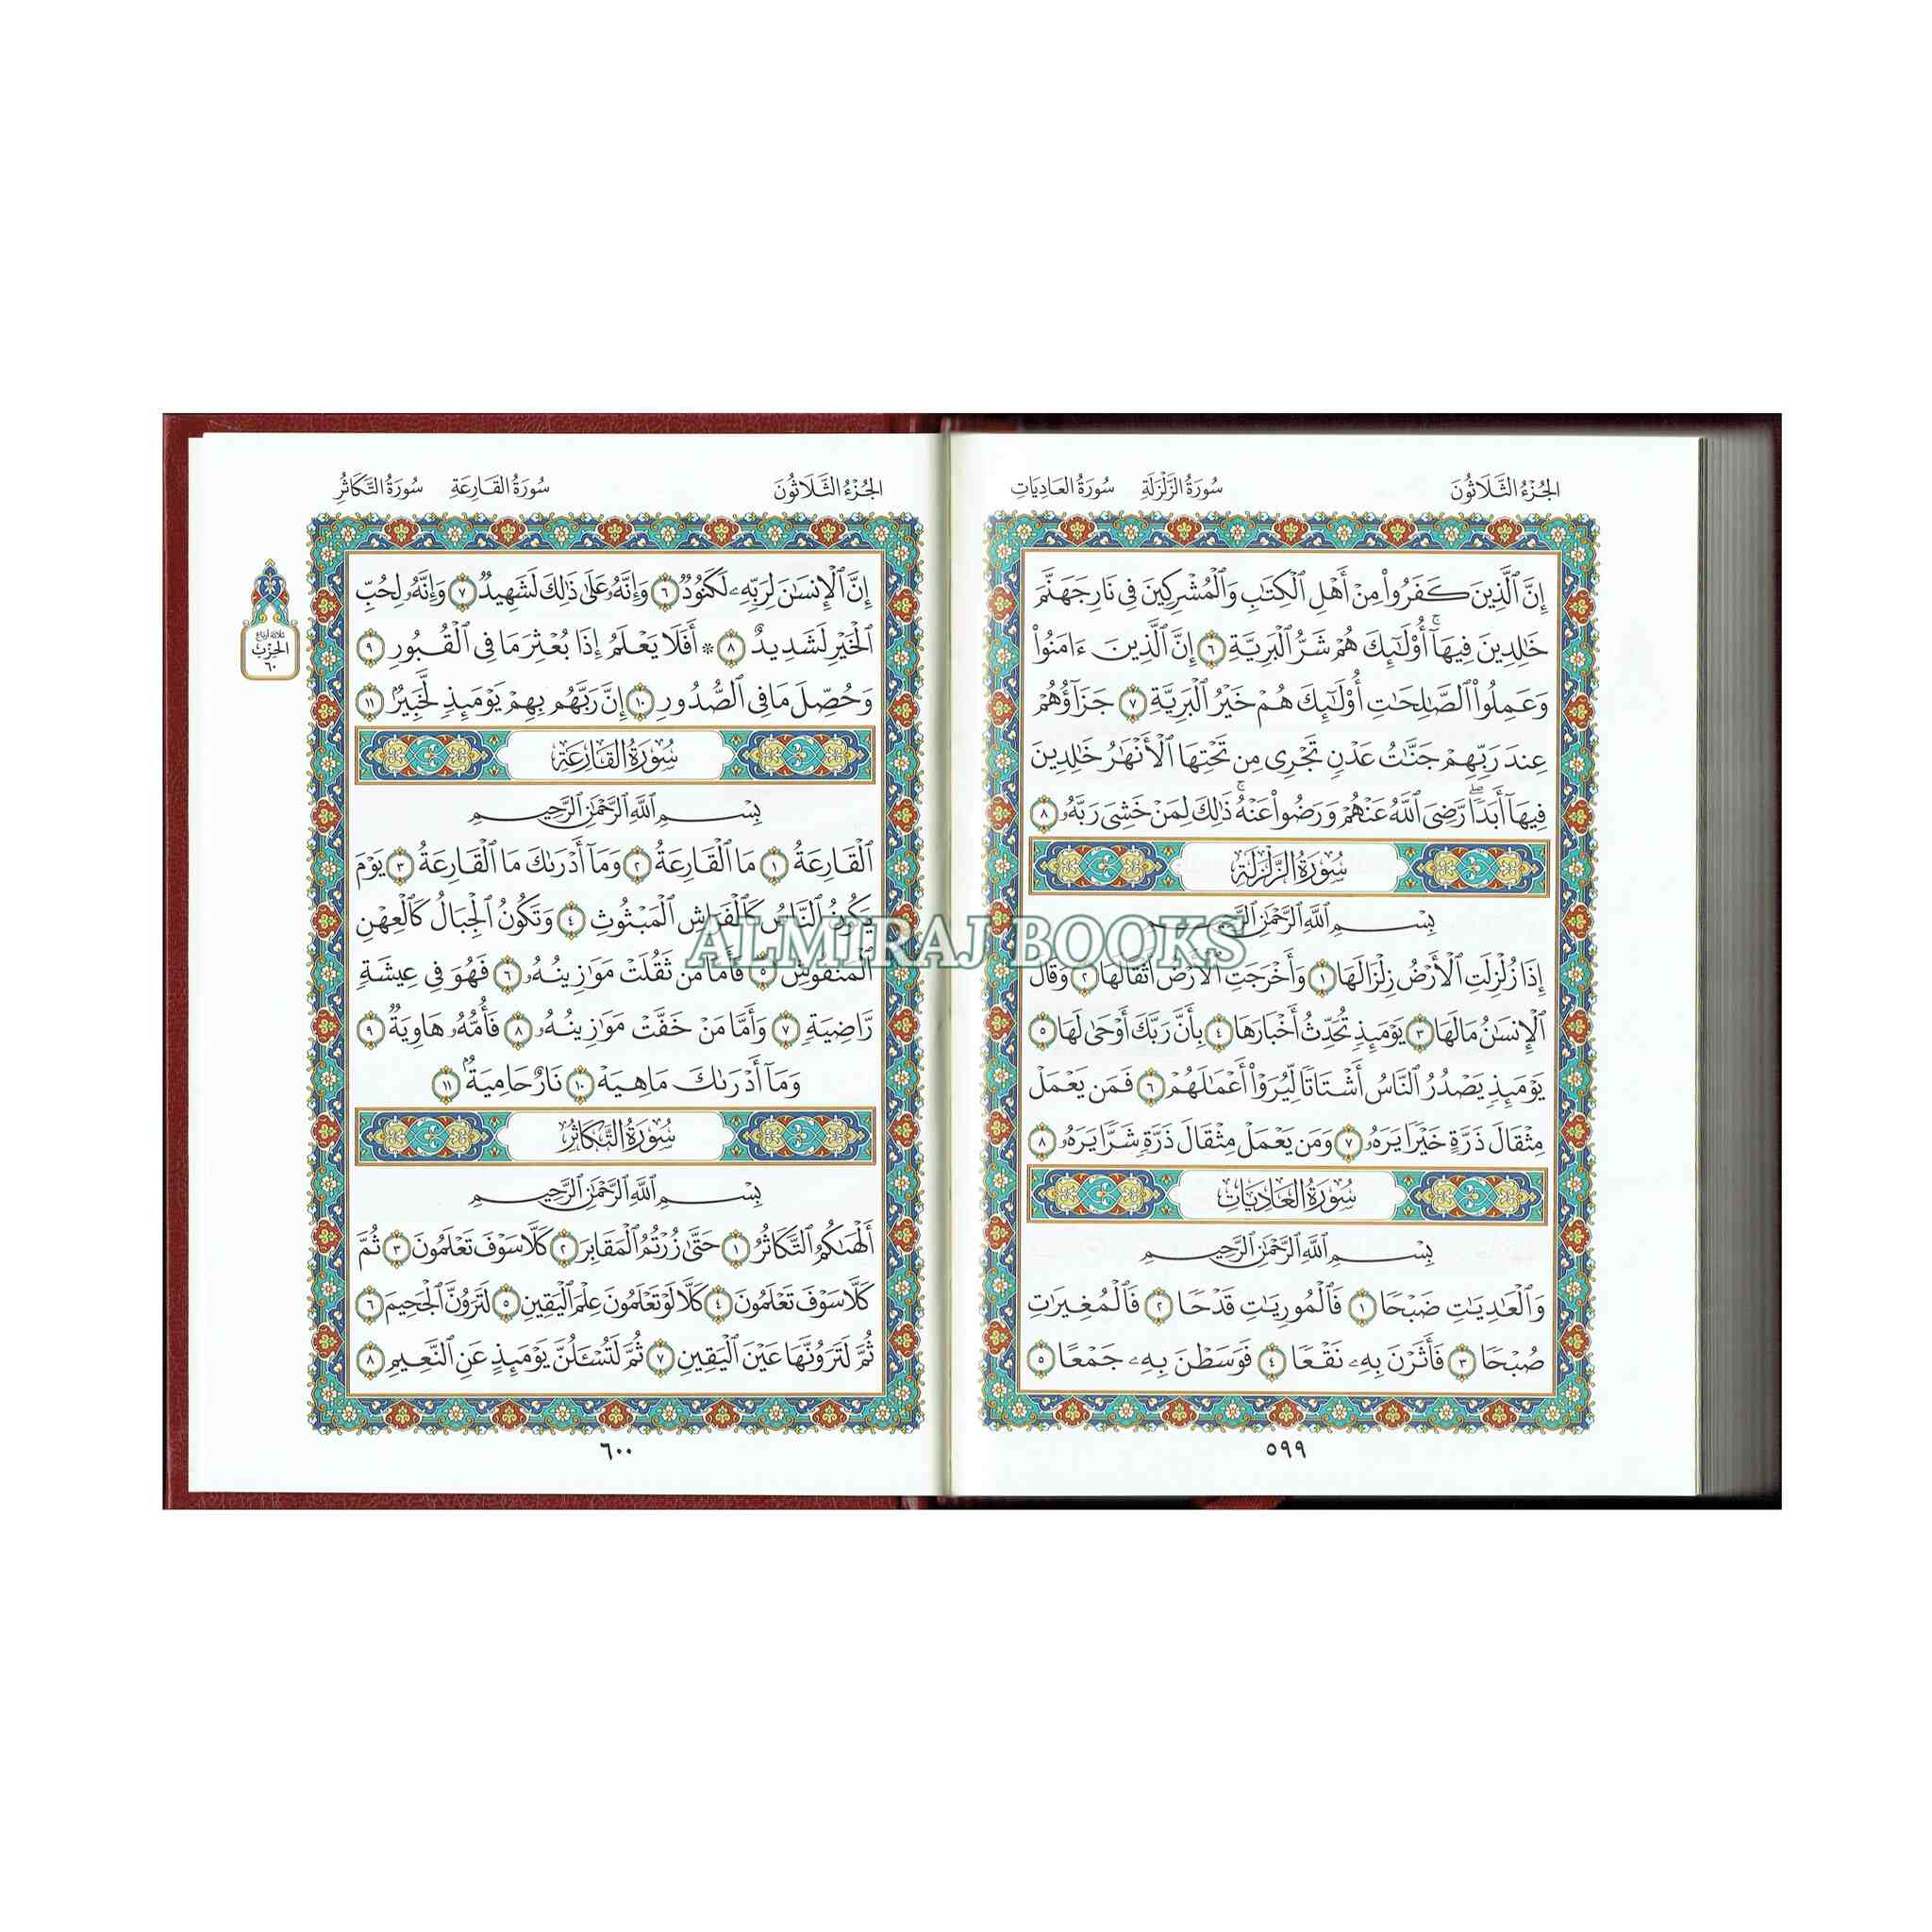 الجُزْءُ الثَّلَاثُونَ سُورَةُ الزَّلْزَلَةِ سُورَةُ العَادِيَاتِ
إِنَّ ٱلَّذِينَ كَفَرُوا۟ مِنْ أَهْلِ ٱلْكِتَٰبِ وَٱلْمُشْرِكِينَ فِى نَارِ جَهَنَّمَ
خَٰلِدِينَ فِيهَآ ۚ أُو۟لَٰٓئِكَ هُمْ شَرُّ ٱلْبَرِيَّةِ ٦ إِنَّ ٱلَّذِينَ ءَامَنُوا۟
وَعَمِلُوا۟ ٱلصَّٰلِحَٰتِ أُو۟لَٰٓئِكَ هُمْ خَيْرُ ٱلْبَرِيَّةِ ٧ جَزَآؤُهُمْ
عِندَ رَبِّهِمْ جَنَّٰتُ عَدْنٍ تَجْرِى مِن تَحْتِهَا ٱلْأَنْهَٰرُ خَٰلِدِينَ
فِيهَآ أَبَدًا ۖ رَّضِىَ ٱللَّهُ عَنْهُمْ وَرَضُوا۟ عَنْهُ ۚ ذَٰلِكَ لِمَنْ خَشِىَ رَبَّهُۥ ٨
سُورَةُ الزَّلْزَلَةِ
بِسْمِ ٱللَّهِ ٱلرَّحْمَٰنِ ٱلرَّحِيمِ
إِذَا زُلْزِلَتِ ٱلْأَرْضُ زِلْزَالَهَا ١ وَأَخْرَجَتِ ٱلْأَرْضُ أَثْقَالَهَا ٢ وَقَالَ
ٱلْإِنسَٰنُ مَا لَهَا ٣ يَوْمَئِذٍ تُحَدِّثُ أَخْبَارَهَا ٤ بِأَنَّ رَبَّكَ أَوْحَىٰ لَهَا ٥
يَوْمَئِذٍ يَصْدُرُ ٱلنَّاسُ أَشْتَاتًا لِّيُرَوْا۟ أَعْمَٰلَهُمْ ٦ فَمَن يَعْمَلْ
مِثْقَالَ ذَرَّةٍ خَيْرًا يَرَهُۥ ٧ وَمَن يَعْمَلْ مِثْقَالَ ذَرَّةٍ شَرًّا يَرَهُۥ ٨
سُورَةُ العَادِيَاتِ
بِسْمِ ٱللَّهِ ٱلرَّحْمَٰنِ ٱلرَّحِيمِ
وَٱلْعَٰدِيَٰتِ ضَبْحًا ١ فَٱلْمُورِيَٰتِ قَدْحًا ٢ فَٱلْمُغِيرَٰتِ
صُبْحًا ٣ فَأَثَرْنَ بِهِۦ نَقْعًا ٤ فَوَسَطْنَ بِهِۦ جَمْعًا ٥
٥٩٩
الجُزْءُ الثَّلَاثُونَ سُورَةُ القَارِعَةِ سُورَةُ التَّكَاثُرِ
إِنَّ ٱلْإِنسَٰنَ لِرَبِّهِۦ لَكَنُودٌ ٦ وَإِنَّهُۥ عَلَىٰ ذَٰلِكَ لَشَهِيدٌ ٧ وَإِنَّهُۥ لِحُبِّ
ٱلْخَيْرِ لَشَدِيدٌ ٨ * أَفَلَا يَعْلَمُ إِذَا بُعْثِرَ مَا فِى ٱلْقُبُورِ ٩
وَحُصِّلَ مَا فِى ٱلصُّدُورِ ١٠ إِنَّ رَبَّهُم بِهِمْ يَوْمَئِذٍ لَّخَبِيرٌۢ ١١
سُورَةُ القَارِعَةِ
بِسْمِ ٱللَّهِ ٱلرَّحْمَٰنِ ٱلرَّحِيمِ
ٱلْقَارِعَةُ ١ مَا ٱلْقَارِعَةُ ٢ وَمَآ أَدْرَىٰكَ مَا ٱلْقَارِعَةُ ٣ يَوْمَ
يَكُونُ ٱلنَّاسُ كَٱلْفَرَاشِ ٱلْمَبْثُوثِ ٤ وَتَكُونُ ٱلْجِبَالُ كَٱلْعِهْنِ
ٱلْمَنفُوشِ ٥ فَأَمَّا مَن ثَقُلَتْ مَوَٰزِينُهُۥ ٦ فَهُوَ فِى عِيشَةٍ
رَّاضِيَةٍ ٧ وَأَمَّا مَنْ خَفَّتْ مَوَٰزِينُهُۥ ٨ فَأُمُّهُۥ هَاوِيَةٌ ٩
وَمَآ أَدْرَىٰكَ مَا هِيَهْ ١٠ نَارٌ حَامِيَةٌۢ ١١
سُورَةُ التَّكَاثُرِ
بِسْمِ ٱللَّهِ ٱلرَّحْمَٰنِ ٱلرَّحِيمِ
أَلْهَىٰكُمُ ٱلتَّكَاثُرُ ١ حَتَّىٰ زُرْتُمُ ٱلْمَقَابِرَ ٢ كَلَّا سَوْفَ تَعْلَمُونَ ٣ ثُمَّ
كَلَّا سَوْفَ تَعْلَمُونَ ٤ كَلَّا لَوْ تَعْلَمُونَ عِلْمَ ٱلْيَقِينِ ٥ لَتَرَوُنَّ ٱلْجَحِيمَ ٦
ثُمَّ لَتَرَوُنَّهَا عَيْنَ ٱلْيَقِينِ ٧ ثُمَّ لَتُسْـَٔلُنَّ يَوْمَئِذٍ عَنِ ٱلنَّعِيمِ ٨
ثلاثة أرباع
الحِزْبُ
٦٠
٦٠٠
ALMIRAJ BOOKS